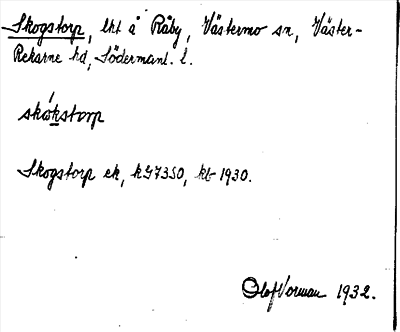 Skogstorp, lht å Råby, Västermo sn, Väster-
Rekarne hd, Södermanl. l.
skókstorp
Skogstorp ek, kb 1930.
Olof Vorman 1932.